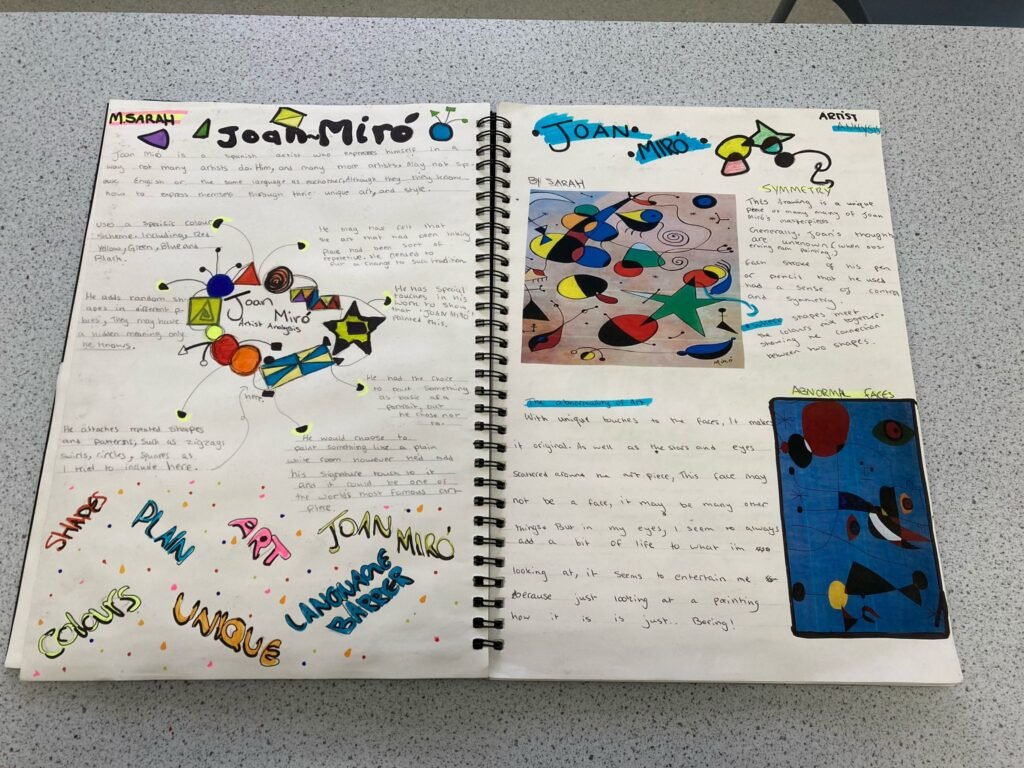 M.SARAH
Joan Miró
Joan Miró is a Spanish artist who expresses himself in a
way not many artists do. Him, and many more artists, May not sp-
eak English or the same language as eachother, Although they know
how to express themselfs through their unique art, and style.
Uses a specific colour
Scheme. Including, Red
Yellow, Green, Blue and
Black.
He may have felt that
the art that had been taking
place had been sort of
repetetive. He needed to
put a change to such tradition.
He adds random sh-
apes in different p-
They may have
a hidden meaning only
he knows.
Joan
Miró
Artist Analysis
He has special
touches in his
work to show
that "JOAN MIRÓ"
painted this.
He had the choice
to paint something
as basic as a
portrait, but
he chose not
to.
here.
He attaches repeated shapes
and patterns, such as zigzags
swirls, circles, squares as
I tried to include here.
He would choose to
paint something like a plain
white room however He'd add
his signature touch to it
and it could be one of
the worlds most famous art
piece.
SHAPES
PLAIN
ART
JOAN MIRÓ
COLOURS
UNIQUE
LANGUAGE
BARRER
JOAN
MIRÓ
ARTIST
ANALYSIS
BY SARAH
SYMMETRY
This drawing is a unique
piece of many many of Joan
Miró's masterpiece
Generally, Joan's thoughts
are unknown (when
painting)
Each stroke of his pen
or pencil that he used
had a sense of control
and symmetry.
shapes meet
the colours together.
showing the connection
between two shapes.
Miró
The abnormality of Art.
With unique touches to the faces, It makes
it original. As well as the stars and eyes
Scattered around the art piece, This face may
not be a face, it may be many other
things. But in my eyes, I seem to always
add a bit of life to what im
looking at, it seems to entertain me
because just looking at a painting
how it is is just.. Boring!
ABNORMAL FACES